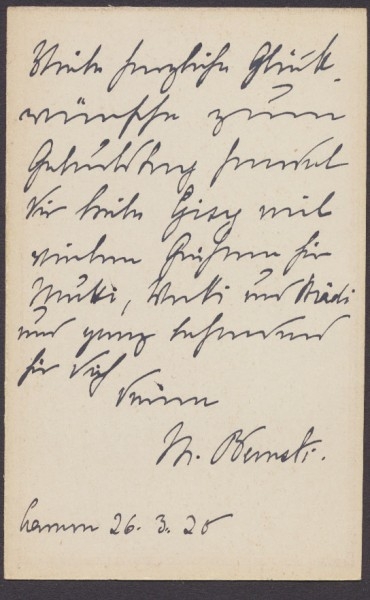 Viele herzliche Glück-
wünsche zum
Geburtstag sendet
Dir liebe Gisy mit
vielen Grüssen für
Mutti, Vatti und Mädi
und ganz besonders
für Dich
Deine
M.
26. 3. 20